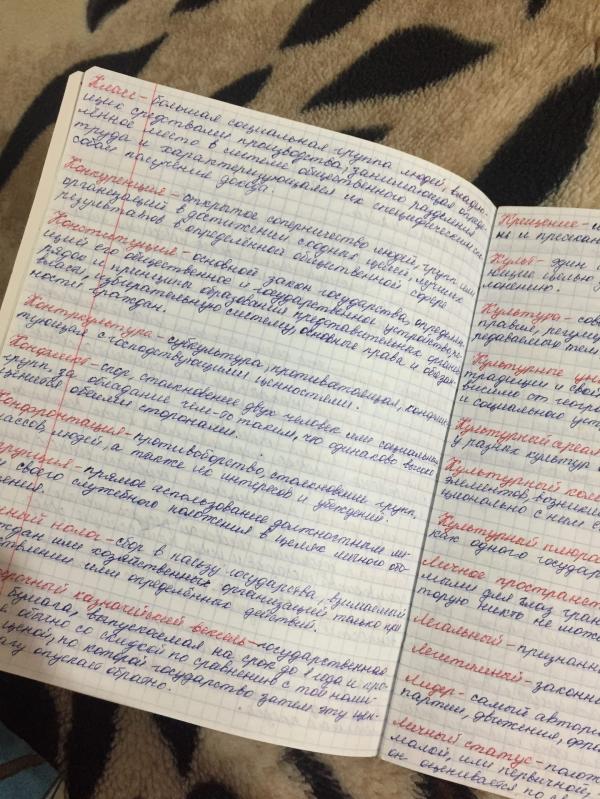 Класс – большая социальная группа людей, владею-
щих средствами производства, занимающая опреде-
лённое место в системе общественного разделения
труда и характеризующаяся их специфическим спо-
собом получения дохода.
Конкуренция – открытое соперничество людей, групп или
организаций в достижении сходных целей, лучших
результатов в определённой общественной сфере
Конституция – основной закон государства, определяю-
щий его общественное и государственное устройство, по-
рядок и принципы образования представительных органов
власти, избирательную систему, основные права и обязан-
ности граждан.
Контркультура – субкультура, противостоящая, конфлик-
тующая с господствующими ценностями.
Конфликт – спор, столкновение двух человек или социальных
групп, за обладание чем-то таким, что одинаково высоко
ценится обеими сторонами.
Конфронтация – противоборство, столкновение групп,
классов людей, а также их интересов и убеждений.
рупция – прямое использование должностным ли-
м своего служебного положения в целях личного обо-
щения.
енный налог – сбор в пользу государства, взимаемый
ждан или хозяйственных организаций только при
ствлении ими определённых действий.
срочный казначейский вексель – государственная
бумага, выпускаемая на срок до 1 года и про-
я обычно со скидкой по сравнению с той номи-
ценой, по которой государство затем эту цен-
агу выпускает обратно.
Крещение –
ни и
Культ – один
ющие целью
лонению.
Культура – сов
правил, регули
редаваемого тем
Культурные уни
традиции и свой
висимо от геогра
и социального уст
Культурный
у разных культур
Культурный ком
элементов, возник
ционально с ним с
Культурный плюрал
как одного государ
Личное пространст
мыми для глаз гран
торую никто не мож
Легальный – признанн
Легитимный – законн
Лидер – самый автори
партии, движения,
Личный статус – полож
малой, или первичной,
он оценивается по